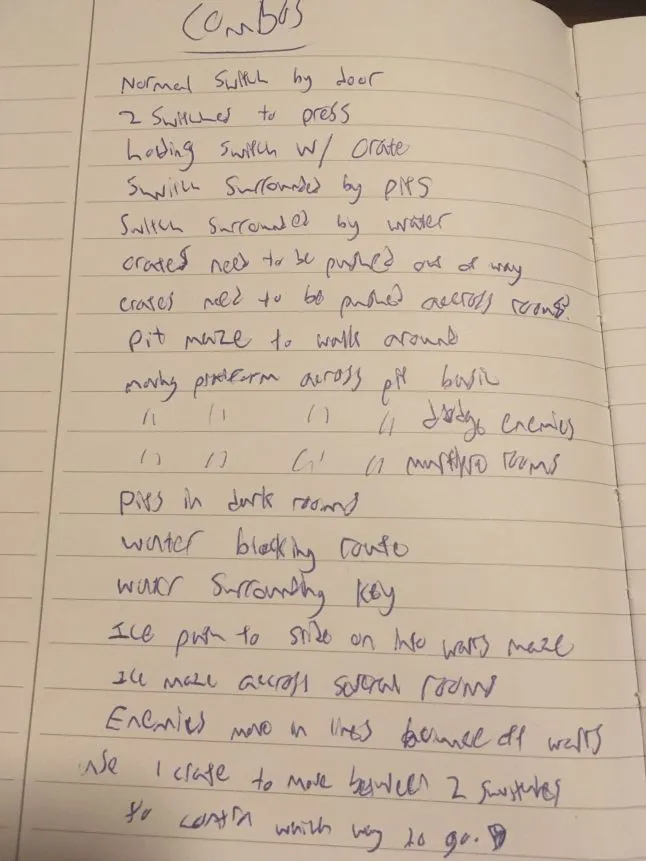 Combos
Normal Switch by door
2 Switches to press
holding switch w/ crate
Switch surrounded by pits
Switch surrounded by water
crates need to be pushed out of way
crates need to be pushed accross rooms.
pit maze to walk around
moving platform across pit basic
" " " " dodge enemies
" " " " multiple rooms
pits in dark rooms
water blocking route
water surrounding key
Ice push to slide on into walls maze
Ice maze accross several rooms
Enemies move in lines bounce off walls
use 1 crate to move between 2 switches
to which way to go.